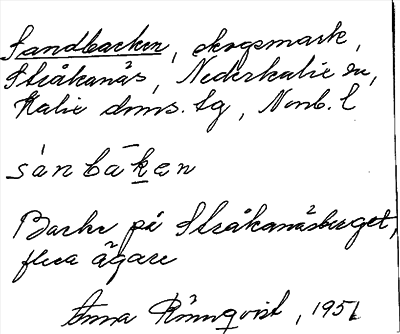 Sandbacken, skogsmark,
Stråkanäs, Nederkalix sn,
Kalix dms. tg, Norrb. l
sànbāken
Backe på Stråkanäsberget,
flera ägare
Anna Rönnqvist, 1951